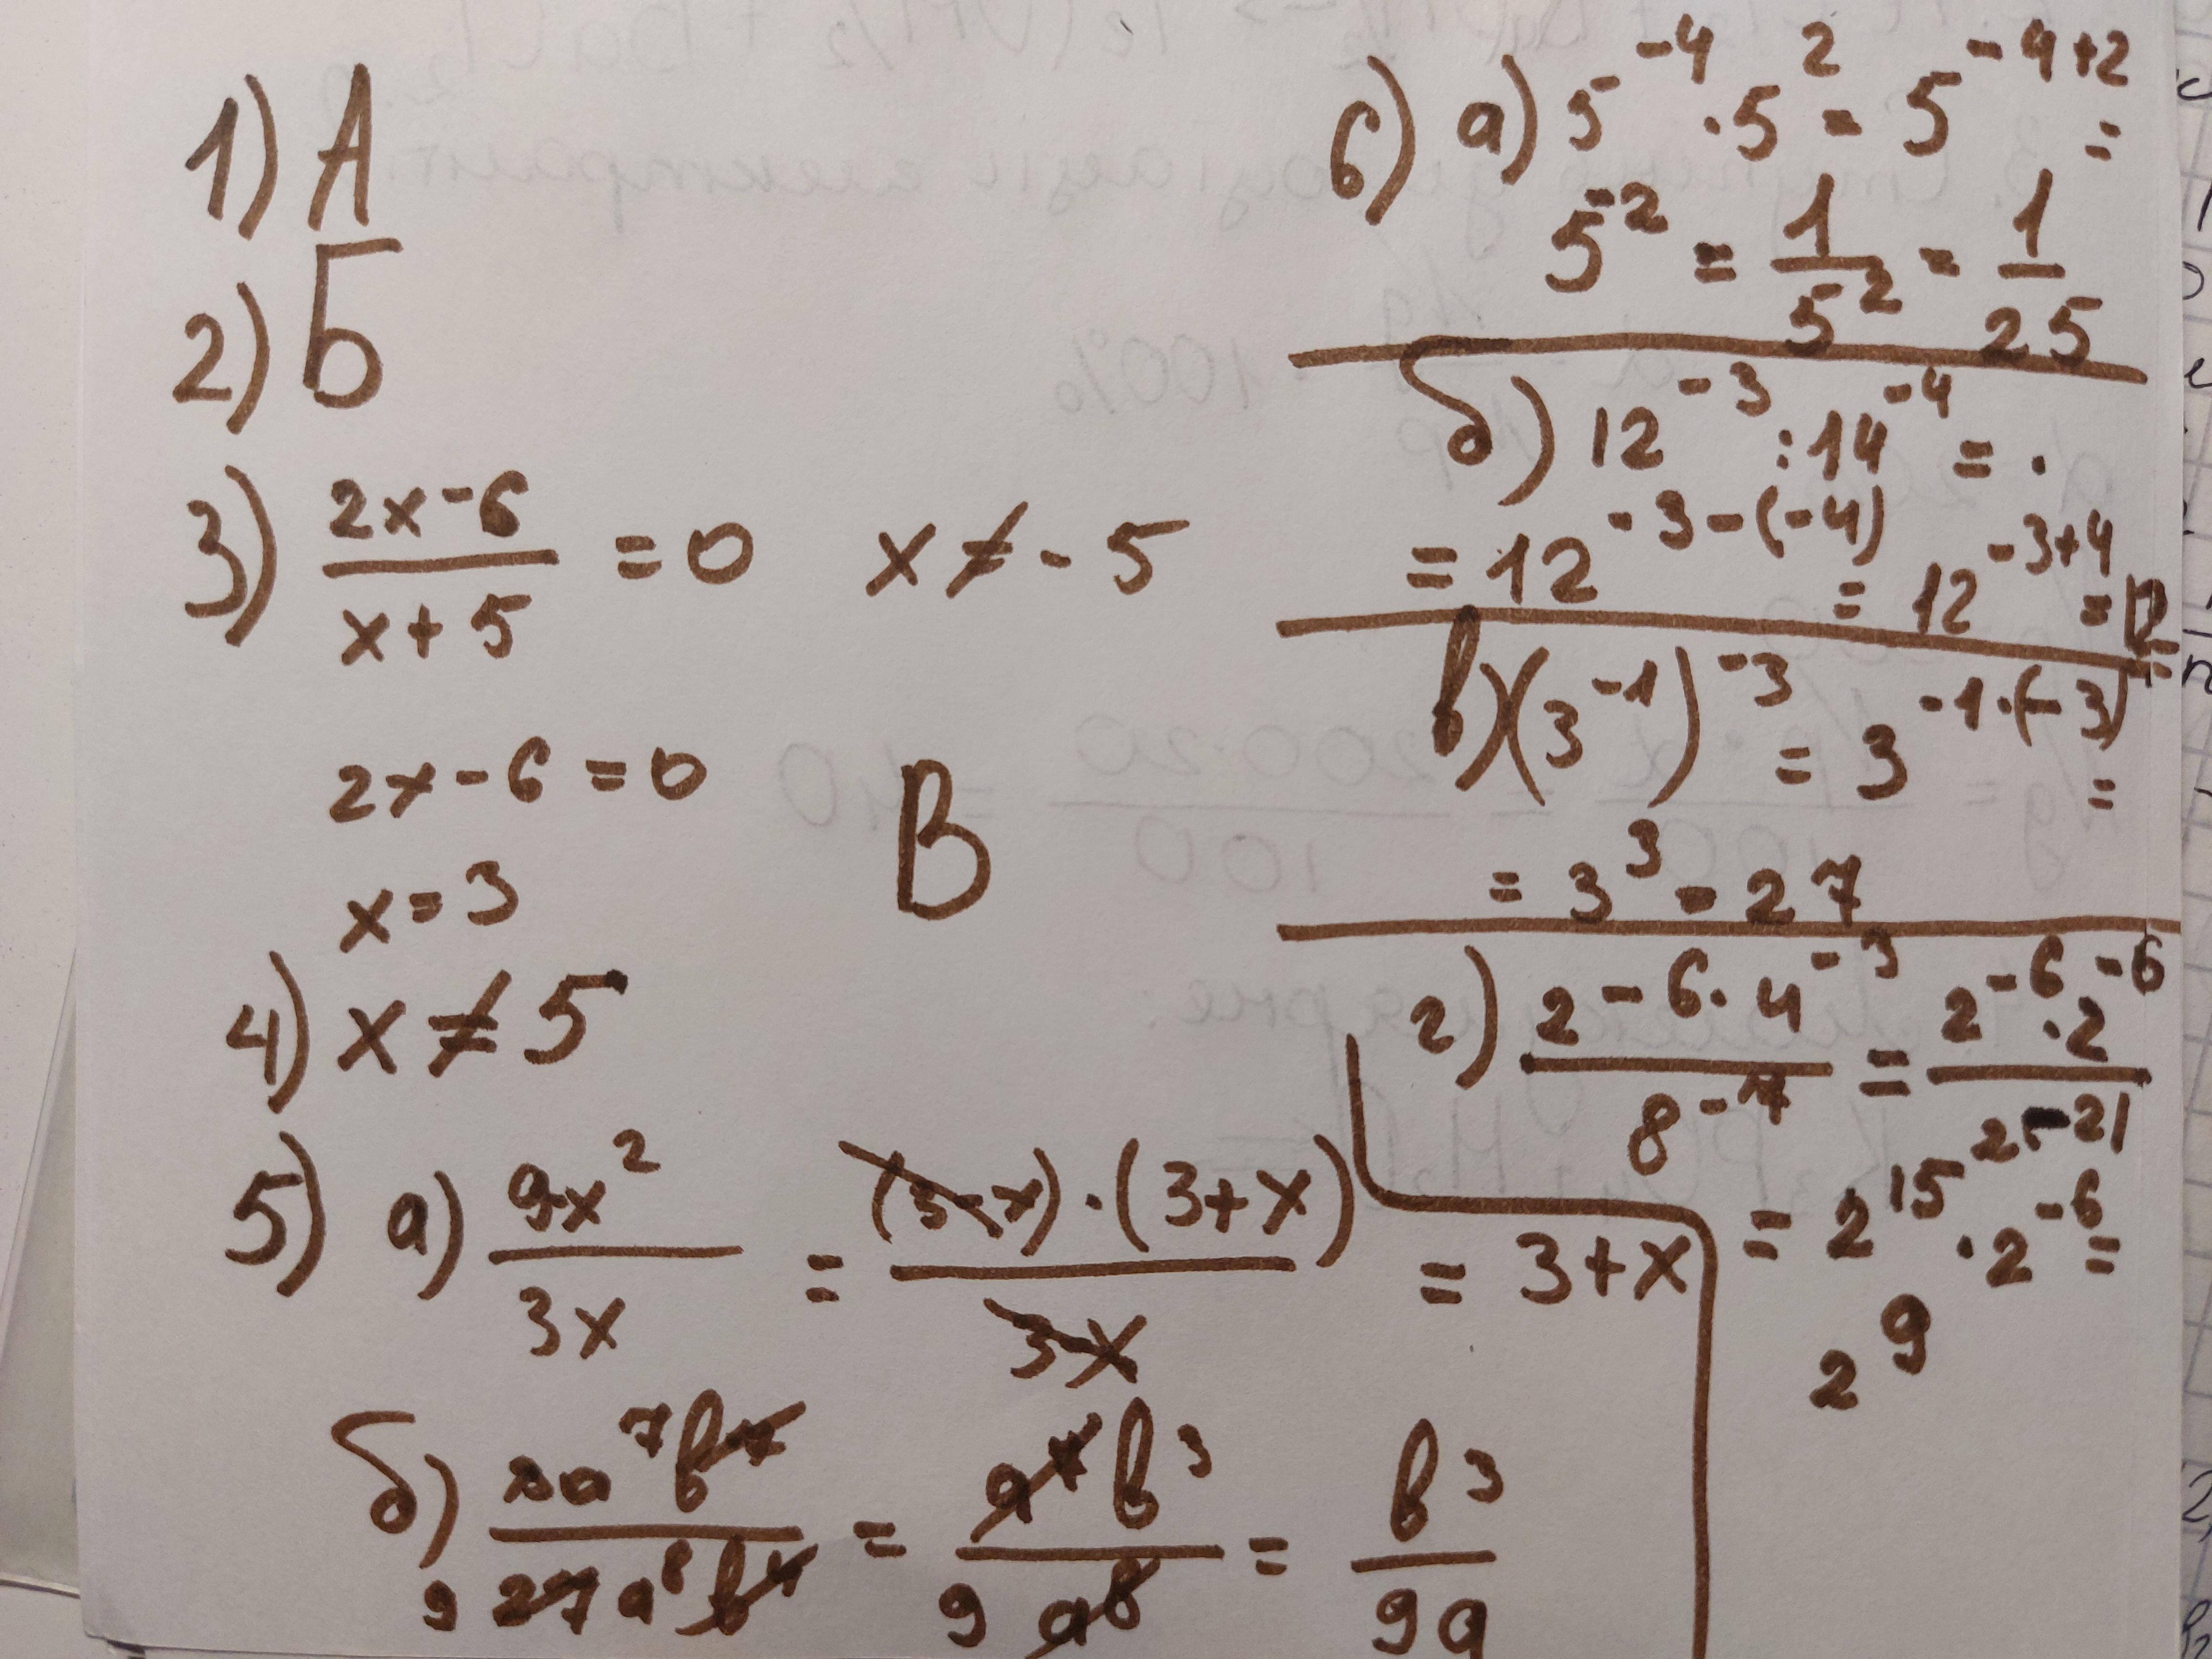 1) А
2) Б
3) (2x-6)/(x+5) = 0   x ≠ - 5
2x - 6 = 0
x = 3   В
4) x ≠ 5
5) а) 9x²/3x = (3-x)·(3+x)/3-x = 3+x
б) 3a⁷b⁷/27a⁸b⁴ 9 = a⁷b³/9a⁸ = b³/9a
6) а) 5⁻⁴ · 5² = 5⁻⁴⁺² =
5⁻² = 1/5² = 1/25
б) 12⁻³ : 14⁻⁴ = .
= 12⁻³⁻⁽⁻⁴⁾ = 12⁻³⁺⁴ = 12
в) (3⁻¹)⁻³ = 3⁻¹·⁽⁻³⁾ =
= 3³ = 27
г) 2⁻⁶ · 4⁻³/8⁻⁷ = 2⁻⁶ · 2⁻⁶/2⁻²¹
= 2¹⁵ · 2⁻⁶ =
2⁹